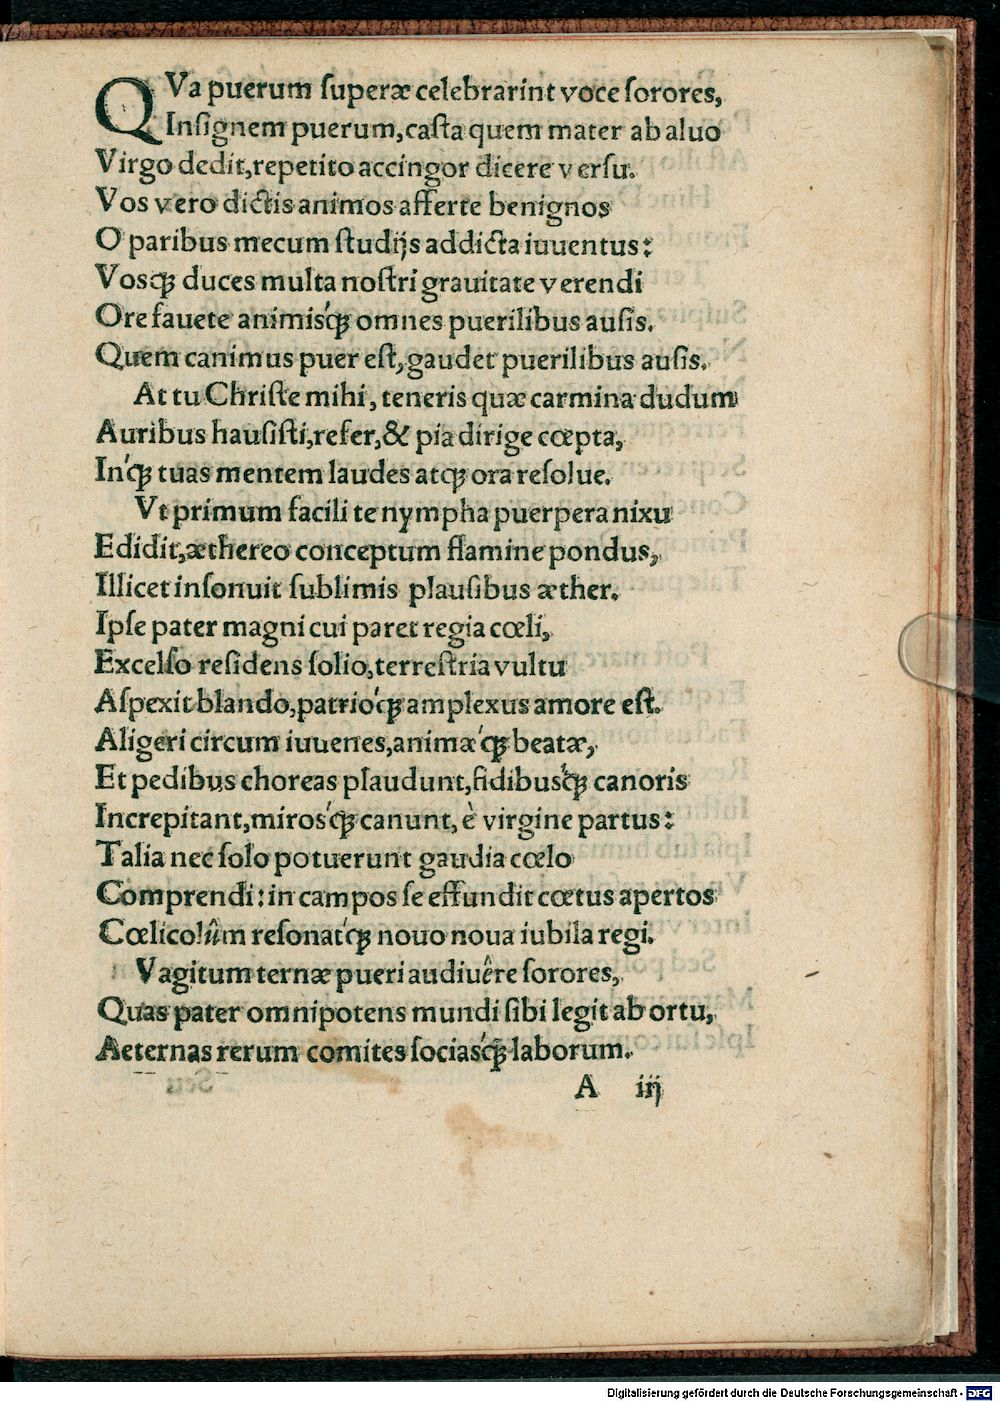 QVa puerum ſuperæ celebrarint voce ſorores,
Inſignem puerum, caſta quem mater ab aluo
Virgo dedit, repetito accingor dicere verſu.
Vos vero dictis animos afferte benignos
O paribus mecum ſtudijs addicta iuuentus:
Vosq́ꝫ duces multa noſtri grauitate verendi
Ore fauete animisq́ꝫ omnes puerilibus auſis.
Quem canimus puer eſt, gaudet puerilibus auſis.
At tu Chriſte mihi, teneris quæ carmina dudum
Auribus hauſiſti, refer, & pia dirige cœpta,
Inq́ꝫ tuas mentem laudes atqꝫ ora reſolue.
Vt primum facili te nympha puerpera nixu
Edidit, æthereo conceptum flamine pondus,
Illicet inſonuit ſublimis plauſibus æther.
Ipſe pater magni cui paret regia cœli,
Excelſo reſidens ſolio, terreſtria vultu
Aſpexit blando, patrioq́ꝫ amplexus amore eſt.
Aligeri circum iuuenes, animæq́ꝫ beatæ,
Et pedibus choreas plaudunt, fidibusq́ꝫ canoris
Increpitant, mirosq́ꝫ canunt, è virgine partus:
Talia nec ſolo potuerunt gaudia cœlo
Comprendi: in campos ſe effundit cœtus apertos
Cœlicolûm reſonatq́ꝫ nouo noua iubila regi.
Vagitum ternæ pueri audiuêre ſorores,
Quas pater omnipotens mundi ſibi legit ab ortu,
Aeternas rerum comites ſociasq́ꝫ laborum.
A iij
Digitalisierung gefördert durch die Deutsche Forschungsgemeinschaft - DFG